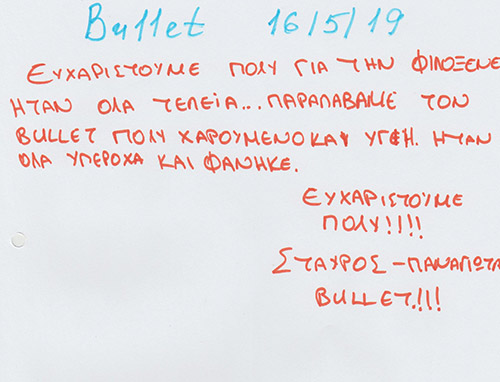 Bullet 16/5/19
ΕΥΧΑΡΙΣΤΟΥΜΕ ΠΟΛΥ ΓΙΑ ΤΗΝ ΦΙΛΟΞΕΝΕ
ΗΤΑΝ ΟΛΑ ΤΕΛΕΙΑ... ΠΑΡΑΛΑΒΑΜΕ ΤΟΝ
BULLET ΠΟΛΥ ΧΑΡΟΥΜΕΝΟ ΚΑΙ ΥΓΙΗ. ΗΤΑΝ
ΟΛΑ ΥΠΕΡΟΧΑ ΚΑΙ ΦΑΝΗΚΕ.
ΕΥΧΑΡΙΣΤΟΥΜΕ
ΠΟΛΥ!!!!
ΣΤΑΥΡΟΣ - ΠΑΝΑΓΙΩΤΑ
BULLET.!!!